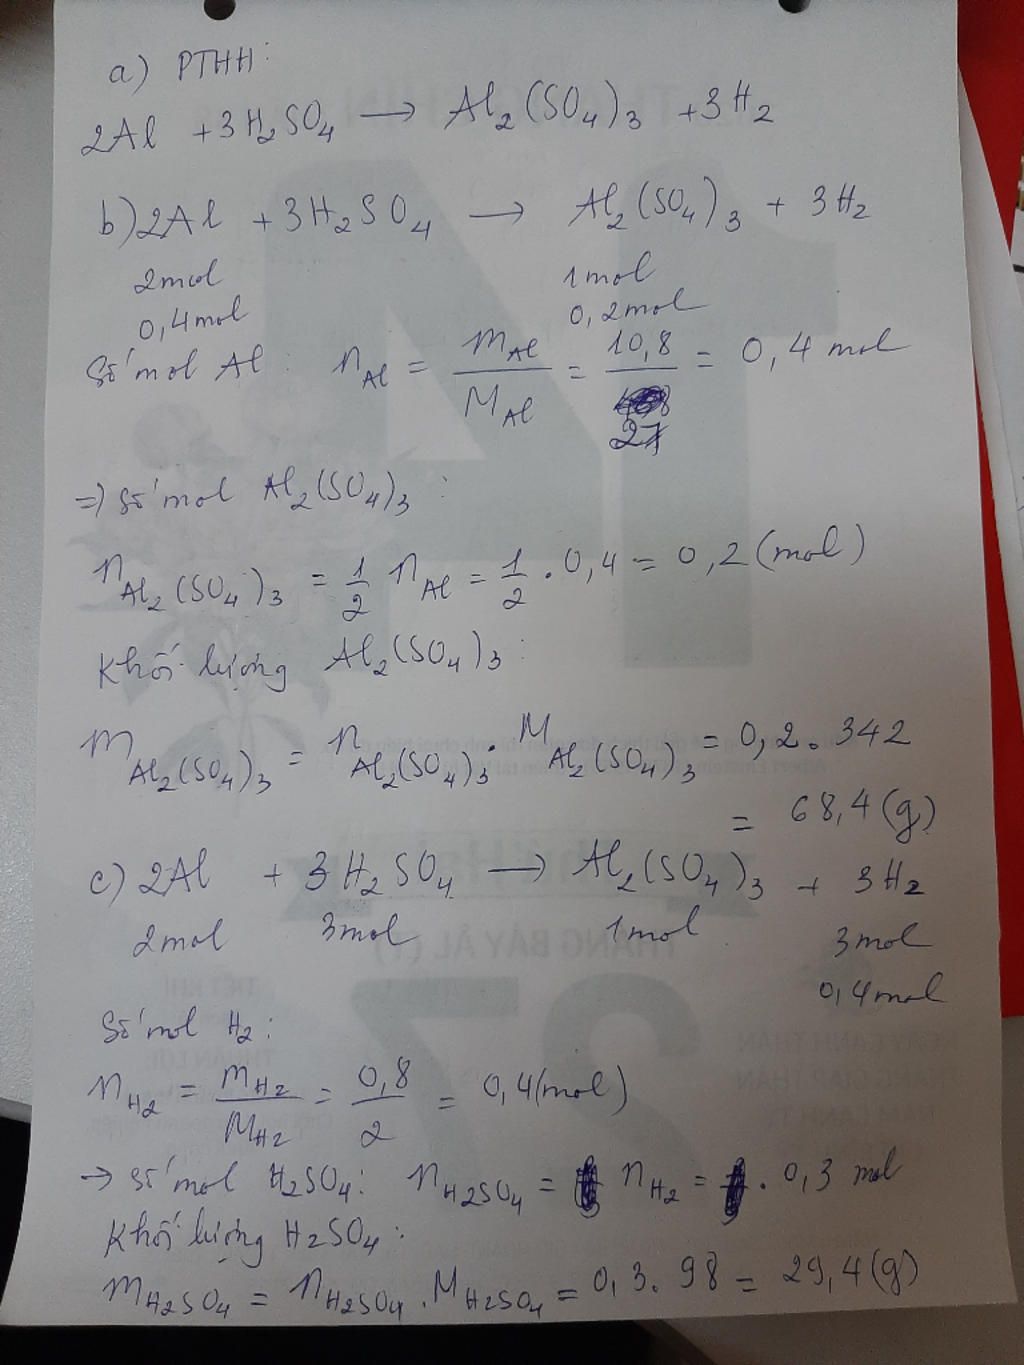 a) PTHH:
2Al + 3H₂SO₄ → Al₂(SO₄)₃ + 3H₂
b) 2Al + 3H₂SO₄ → Al₂(SO₄)₃ + 3H₂
2mol 1mol
0,4mol 0,2mol
Số mol Al: nAl = mAl / MAl = 10,8 / 27 = 0,4 mol
=) số mol Al₂(SO₄)₃:
nAl₂(SO₄)₃ = 1/2 nAl = 1/2 . 0,4 = 0,2 (mol)
Khối lượng Al₂(SO₄)₃:
mAl₂(SO₄)₃ = nAl₂(SO₄)₃ . MAl₂(SO₄)₃ = 0,2 . 342
= 68,4 (g)
c) 2Al + 3H₂SO₄ → Al₂(SO₄)₃ + 3H₂
2mol 3mol 1mol 3mol
0,4mol
Số mol H₂:
nH₂ = mH₂ / MH₂ = 0,8 / 2 = 0,4 (mol)
→ số mol H₂SO₄: nH₂SO₄ = nH₂ = . 0,3 mol
Khối lượng H₂SO₄:
mH₂SO₄ = nH₂SO₄ . MH₂SO₄ = 0,3 . 98 = 29,4 (g)